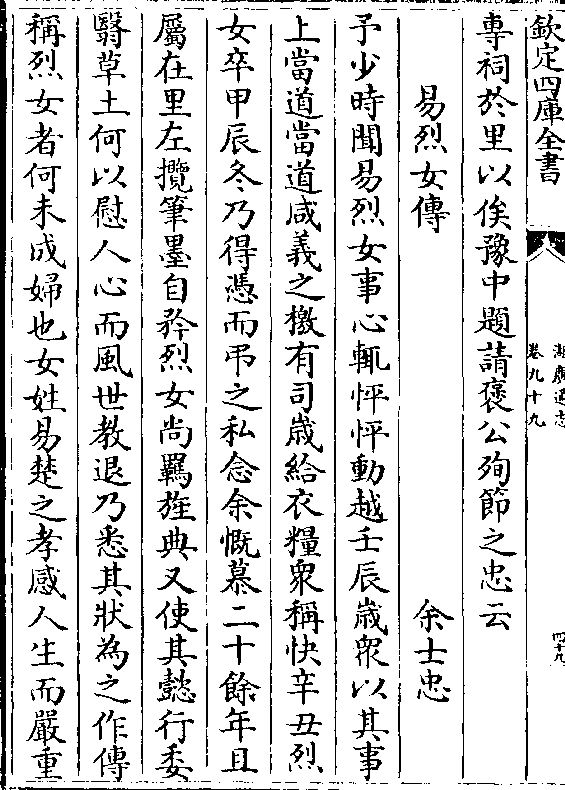 欽定四庫全書
湖廣通志
卷九十九
四十九
專祠於里以俟豫中題請褒公殉節之忠云
易烈女傳
余士忠
予少時聞易烈女事心輒怦怦動越壬辰嵗衆以其事
上當道當道咸義之檄有司嵗給衣糧衆稱快辛丑烈
女卒甲辰冬乃得憑而弔之私念余慨慕二十餘年且
屬在里左攬筆墨自矜烈女尚羈旌典又使其懿行委
翳草土何以慰人心而風世教退乃悉其狀為之作傳
稱烈女者何未成婦也女姓易楚之孝感人生而嚴重